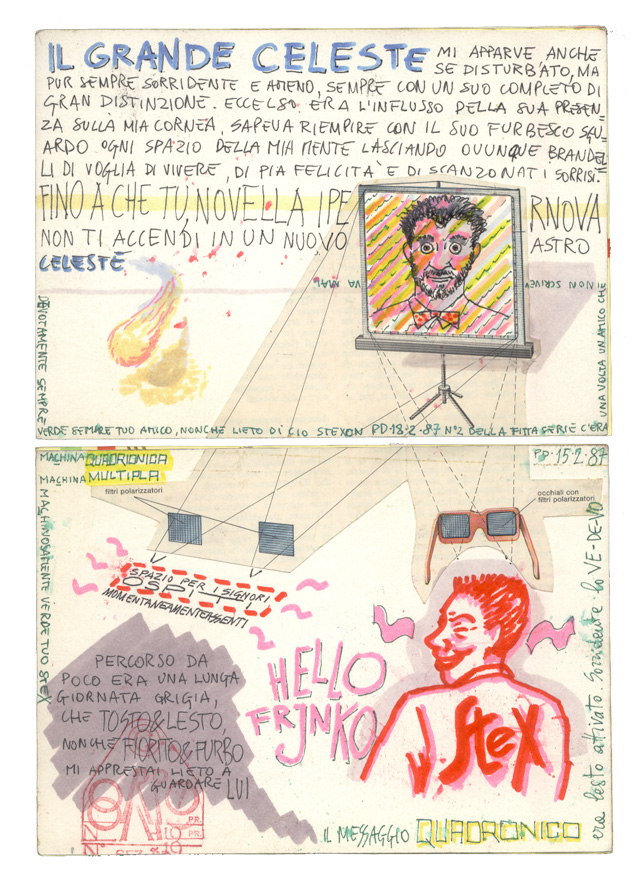 IL GRANDE CELESTE MI APPARVE ANCHE
SE DISTURBATO, MA
PUR SEMPRE SORRIDENTE E AMENO, SEMPRE CON UN SUO COMPLETO DI
GRAN DISTINZIONE. ECCELSO ERA L'INFLUSSO DELLA SUA PRESEN-
ZA SULLA MIA CORNEA, SAPEVA RIEMPIRE CON IL SUO FURBESCO SGU-
ARDO OGNI SPAZIO DELLA MIA MENTE LASCIANDO OVUNQUE BRANDEL-
LI DI VOGLIA DI VIVERE, DI PIA FELICITA' E DI SCANZONATI SORRISI.
FINO A CHE TU, NOVELLA IPE RNOVA
NON TI ACCENDI IN UN NUOVO ASTRO
CELESTE
DEVOTAMENTE SEMPRE
VERDE SEMPRE TUO AMICO, NONCHE LIETO DI CIO STEXON PD-18-2-87 N°2 DELLA FITTA SERIE C'ERA
UNA VOLTA UN AMICO CHE
NON SCRIVEVA MAI
MACHINA QUADRIONICA
MACHINA MULTIPLA
PD-15-2-87
filtri polarizzatori
occhiali con
filtri polarizzatori
SPAZIO PER I SIGNORI
OSPITI
MOMENTANEAMENTE ASSENTI
MACHINOSAMENTE VERDE TUO STEX
PERCORSO DA
POCO ERA UNA LUNGA
GIORNATA GRIGIA,
CHE TOSTO&LESTO,
NONCHE FIORITO&FURBO
MI APPRESTAI LIETO A
GUARDARE LUI
HELLO
FRJNKO
SteX
IL MESSAGGIO QUADRONICO
era lesto attivato Sorridente lo VE-DE-VO